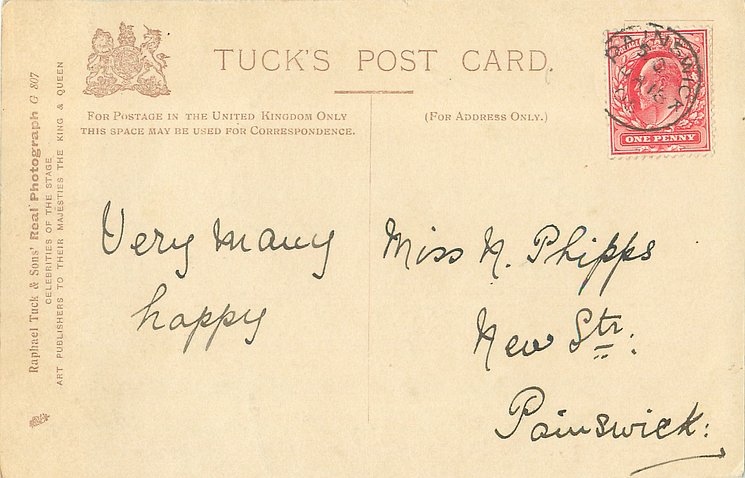 TUCK'S POST CARD.
FOR POSTAGE IN THE UNITED KINGDOM ONLY
THIS SPACE MAY BE USED FOR CORRESPONDENCE.
(FOR ADDRESS ONLY.)
Raphael Tuck & Sons' "Real Photograph" G 807
CELEBRITIES OF THE STAGE
ART PUBLISHERS TO THEIR MAJESTIES THE KING & QUEEN
PAINSWICK
ONE PENNY
Very many
happy
Miss N. Phipps
New Str:
Painswick: